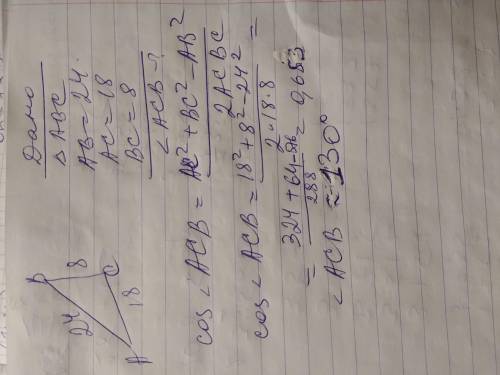 Дано
△ABC
AB=24.
AC=18
BC=8
∠ACB-?
B
24
8
A
18
C
cos∠ACB = AC²+BC²-AB² / 2ACBC
cos∠ACB = 18²+8²-24² / 2·18·8 =
= 324+64-576 / 288 = 0,653
∠ACB ≈ 130°